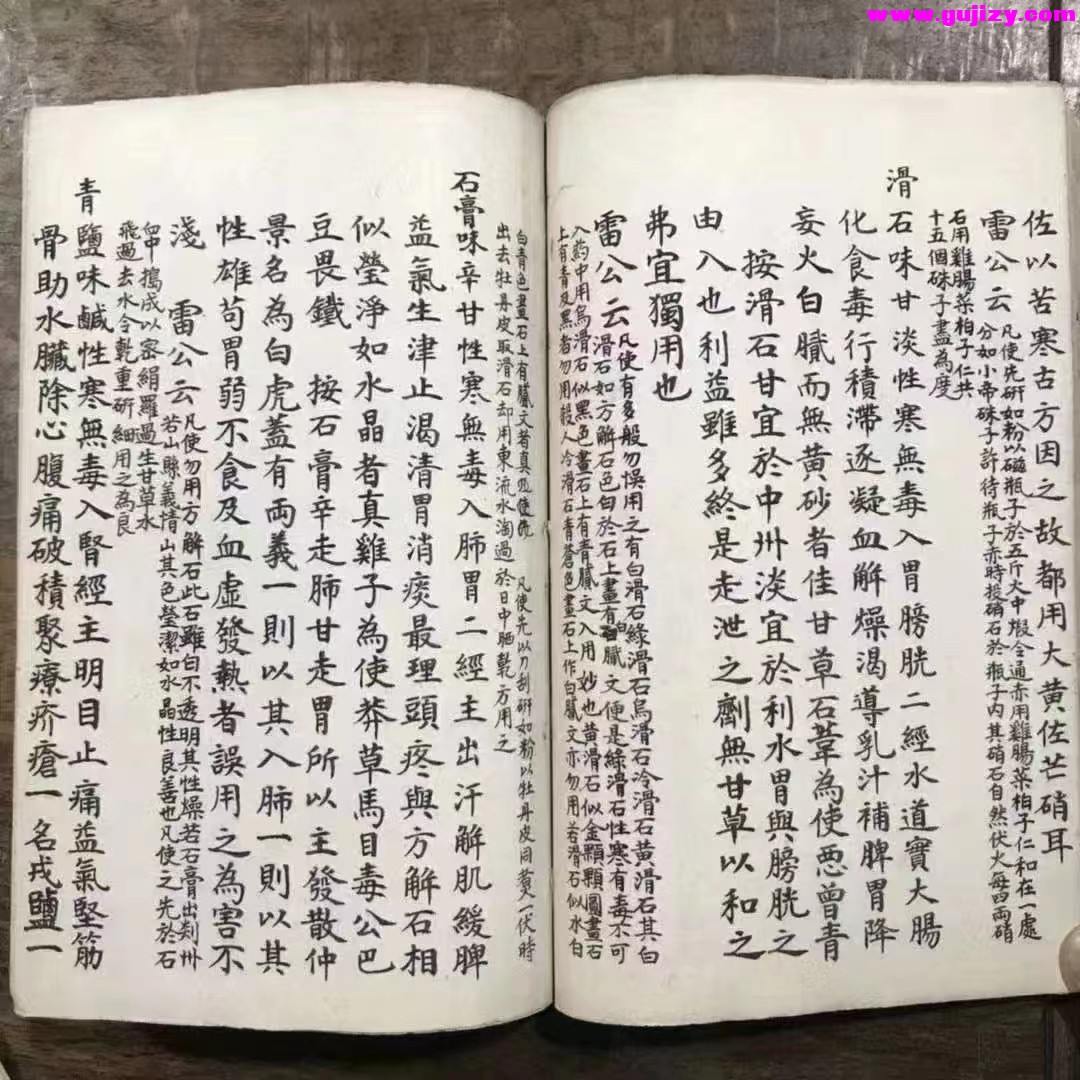 www.gujizy.com
佐以苦寒古方因之故都用大黃佐芒硝耳
雷公云
凡使先研如粉以磁瓶子於五斤火中煆令通赤用雞腸菜柏子仁和在一處
分如小帝硃子許待瓶子赤時投硝石於瓶子內其硝石自然伏火每四兩硝
石用雞腸菜柏子仁共
十五個硃子盡為度
滑石味甘淡性寒無毒入胃膀胱二經水道實大腸
化食毒行積滯逐凝血解燥渴導乳汁補脾胃降
妄火白膩而無黃砂者佳甘草石葦為使惡曾青
按滑石甘宜於中州淡宜於利水胃與膀胱之
由入也利益雖多終是走泄之劑無甘草以和之
弗宜獨用也
雷公云
凡使有多般勿悮用之有白滑石綠滑石烏滑石冷滑石黃滑石其白
滑石如方解石色白於石上畫有白膩文便是綠滑石性寒有毒不可
入药中用烏滑石似黑色畫石上有青膩文入用妙也黃滑石似金顆顆圓畫石
上有青及黑者勿用殺人冷滑石青蒼色畫石上作白膩文亦勿用若滑石似水白
白青色畫石上有膩文者真凡使先以刀刮研如粉以牡丹皮同煮一伏時
出去牡丹皮取滑石却用東流水淘過於日中晒乾方用之
石膏味辛甘性寒無毒入肺胃二經主出汗解肌緩脾
益氣生津止渴清胃消痰最理頭疼與方解石相
似瑩淨如水晶者真雞子為使莽草馬目毒公巴
豆畏鐵 按石膏辛走肺甘走胃所以主發散仲
景名為白虎蓋有兩義一則以其入肺一則以其
性雄苟胃弱不食及血虛發熱者誤用之為害不
淺 雷公云
凡使勿用方解石此石雖白不透明其性燥若石膏出剡州
若山縣義情山其色瑩潔如水晶性良善也凡使之先於石
臼中搗成以密絹羅過生甘草水
飛過去水令乾重研細用之為良
青鹽味鹹性寒無毒入腎經主明目止痛益氣堅筋
骨助水臟除心腹痛破積聚療疥瘡一名戎鹽一